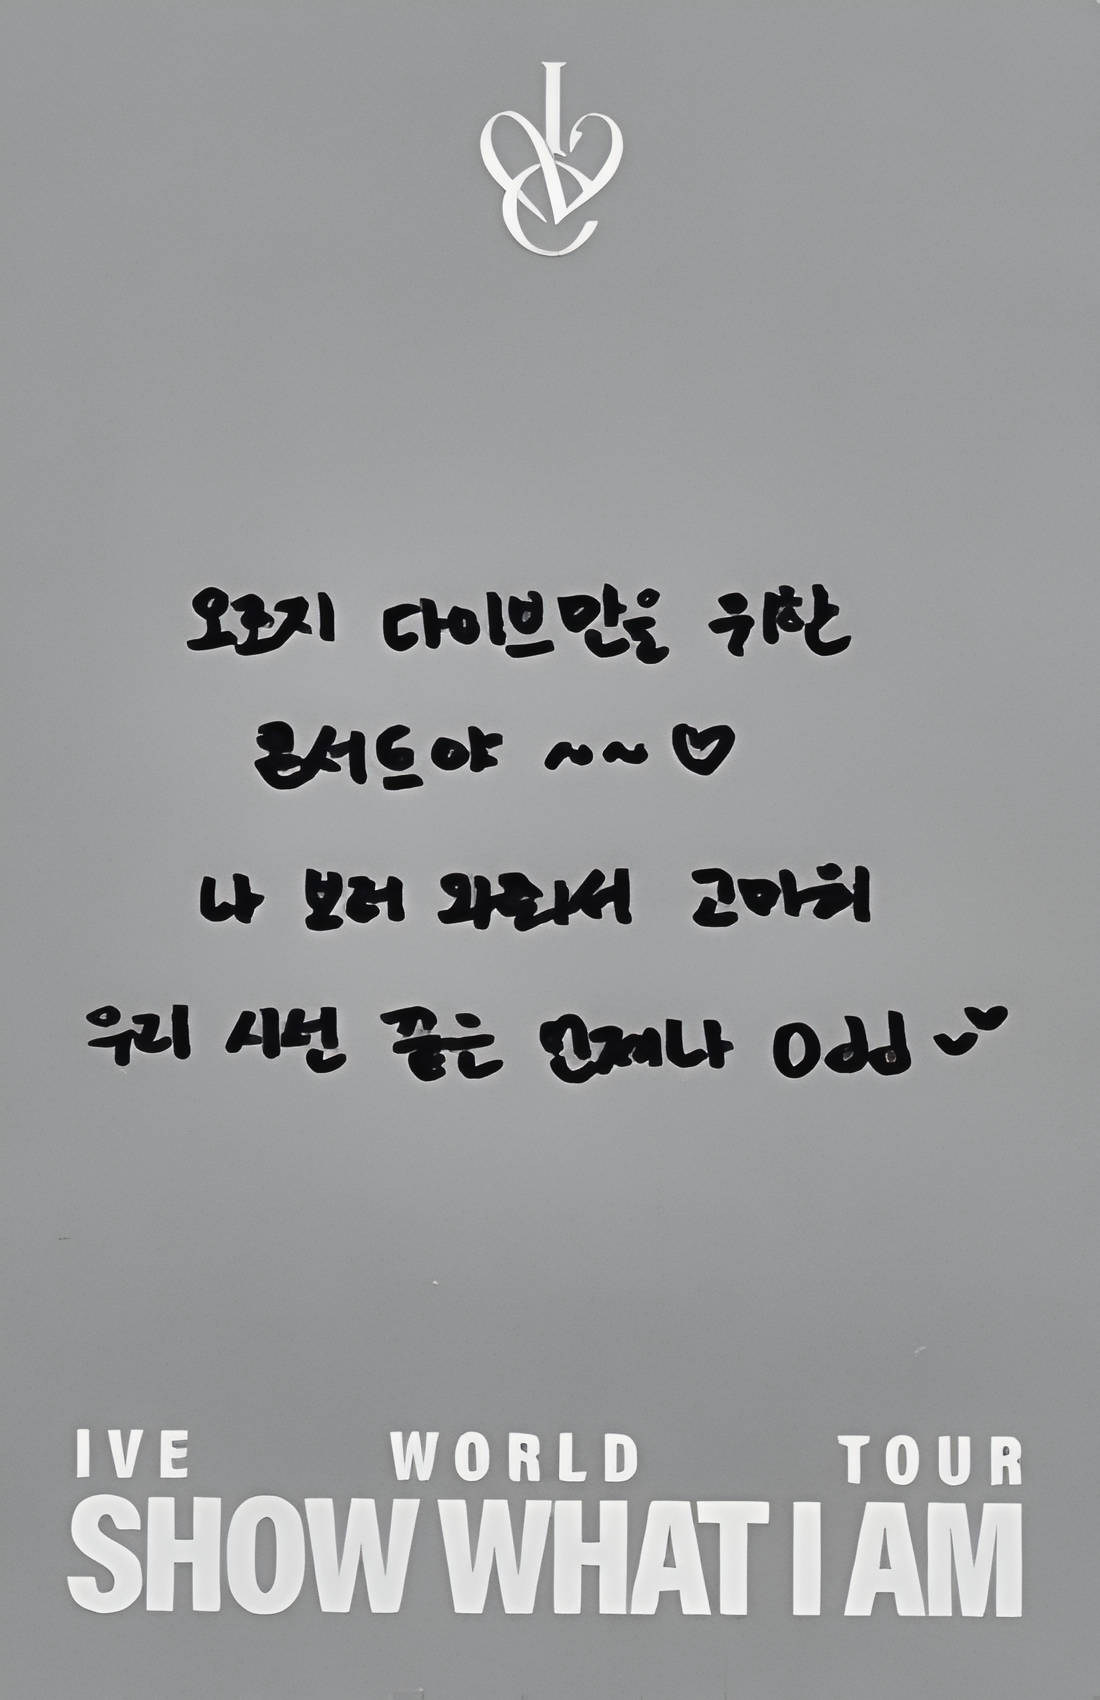 오로지 다이브만을 위한
콘서트야 ~~♡
나 보러 와줘서 고마워
우리 시선 끝은 언제나 Odd
IVE WORLD TOUR
SHOW WHAT I AM